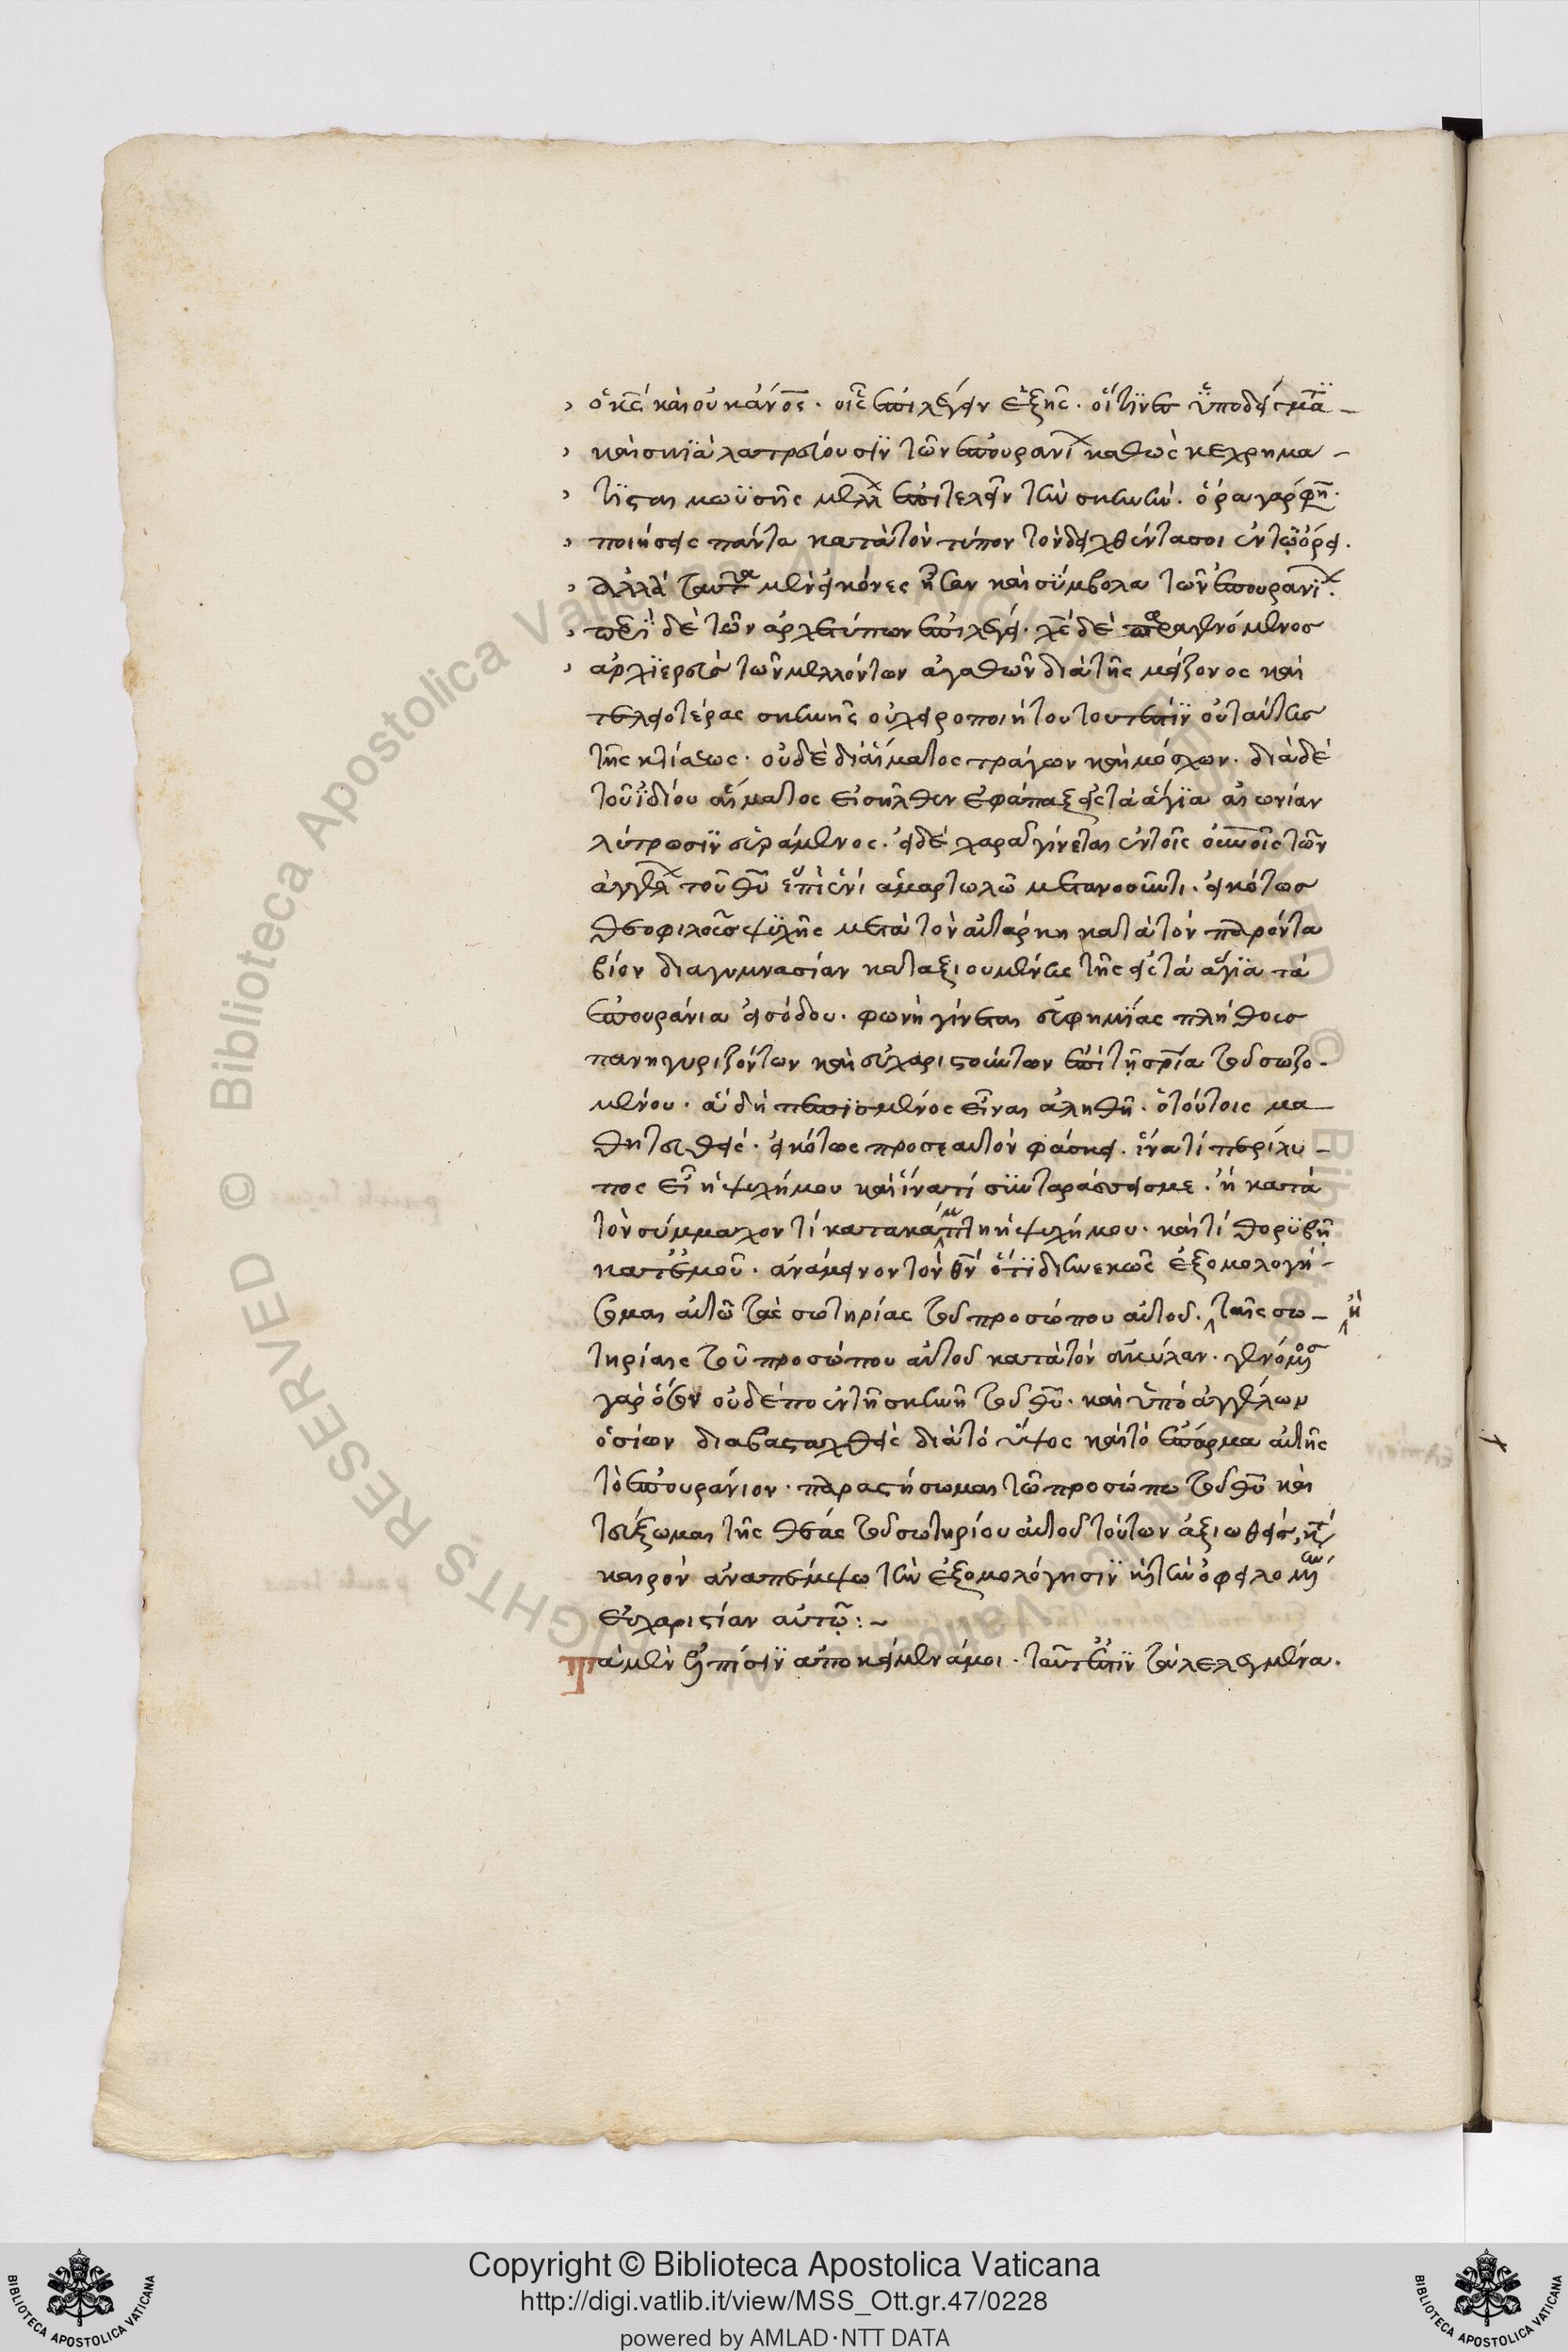 ὁ κ̅ς̅ καὶ οὐκ ἀν̅ο̅ς̅. οἷς ἐπιλέγει ἑξῆς. οἵτινες ὑποδείγματι
καὶ σκιᾷ λατρεύουσιν τῶν ἐπουρανίων καθὼς κεχρημα-
τισται μωϋσῆς μέλλων ἐπιτελεῖν τὴν σκηνήν. ὅρα γάρ φησι.
ποιήσεις πάντα κατὰ τὸν τύπον τὸν δειχθέντα σοι ἐν τῷ ὄρει.
ἀλλὰ ταῦτα μὲν εἰκόνες ἦσαν καὶ σύμβολα τῶν ἐπουρανίων.
περὶ δὲ τῶν ἀρχετύπων ἐπιλέγει. χ̅ς̅ δὲ παραγενόμενος
ἀρχιερεὺς τῶν μελλόντων ἀγαθῶν διὰ τῆς μείζονος καὶ
τελειοτέρας σκηνῆς οὐ χειροποιήτου τουτέστιν οὐ ταύτης
τῆς κτίσεως. οὐδὲ δι' αἵματος τράγων καὶ μόσχων. διὰ δὲ
τοῦ ἰδίου αἵματος εἰσῆλθεν ἐφάπαξ εἰς τὰ ἅγια αἰωνίαν
λύτρωσιν εὑράμενος. εἰ δὲ χαρὰ γίνεται ἐν τοῖς οὐνοῖς τῶν
ἀγγέλων τοῦ θ̅υ̅ ἐπὶ ἑνὶ ἁμαρτωλῷ μετανοοῦντι. εἰκότως
θεοφιλοῦς ψυχῆς μετὰ τὸν αὐτάρκη κατὰ τὸν παρόντα
βίον διαγυμνασίαν καταξιουμένης τῆς εἰς τὰ ἅγια τὰ
ἐπουράνια εἰσόδου. φωνὴ γίνεται εὐφημίας πλήθους
πανηγυριζόντων καὶ εὐχαριστούντων ἐπὶ τῇ σ̅ρ̅ία τοῦ σωζο-
μένου. ἃ δὴ πεπεισμένος εἶναι ἀληθῆ. ὁ τούτοις μα-
θητευθεὶς. εἰκότως πρὸς ἑαυτὸν φάσκει. ἵνα τί περίλυ-
πος εἶ ἡ ψυχή μου καὶ ἵνα τί συνταράσσεις με. ἢ κατὰ
τὸν σύμμαχον τί κατακάμπτῃ ἡ ψυχή μου. καὶ τί θορυβῇ
κατ' ἐμοῦ. ἀνάμεινον τὸν θ̅ν̅ ὅτι διηνεκῶς ἐξομολογή-
σομαι αὐτῷ τὰς σωτηρίας τοῦ προσώπου αὐτοῦ. ἢ ταῖς σω-
τηρίαις τοῦ προσώπου αὐτοῦ κατὰ τὸν ἀκύλαν. γενόμενος
γὰρ ὅσον οὐδέπω ἐν τῇ σκηνῇ τοῦ θ̅υ̅. καὶ ὑπὸ ἀγγέλων
ὁσίων διαβασταχθεὶς διὰ τὸ ὕψος καὶ τὸ ἔπαρμα αὐτῆς
τὸ ἐπουράνιον. παραστήσωμαι τῷ προσώπῳ τοῦ θ̅υ̅ καὶ
τεύξωμαι τῆς θέας τοῦ σωτηρίου αὐτοῦ τούτων ἀξιωθεὶς, κατὰ
καιρὸν ἀναπέμψω τὴν ἐξομολόγησιν καὶ τὴν ὀφειλομένην
εὐχαριστίαν αὐτῷ:~
Τὰ μὲν ἐλπίσιν ἀποκείμενά μοι. ταῦτ' ἐστὶν τὰ λελεγμένα.
Copyright © Biblioteca Apostolica Vaticana
http://digi.vatlib.it/view/MSS_Ott.gr.47/0228
powered by AMLAD·NTT DATA